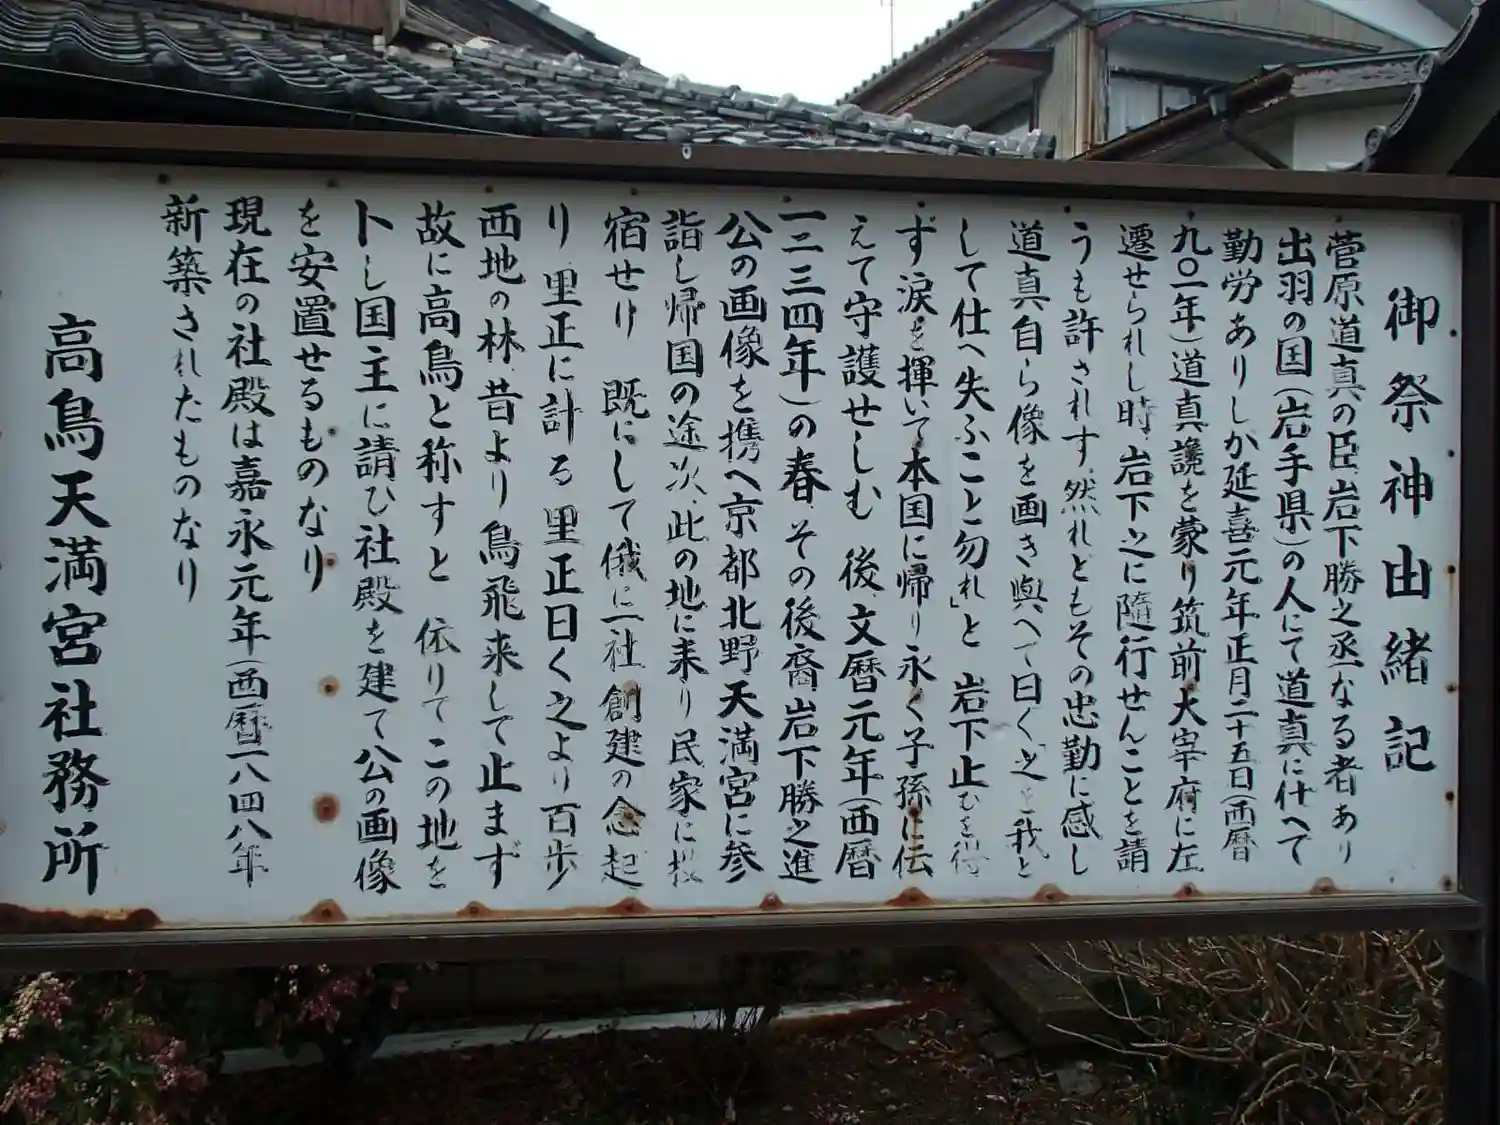 御祭神由緒記
菅原道真の臣、岩下勝之丞なる者あり
出羽の国（岩手県）の人にて道真に仕へて
勤労ありしが延喜元年正月二十五日（西暦
九〇一年）道真讒を蒙り筑前大宰府に左
遷せられし時、岩下之に随行せんことを請
うも許されす、然れともその忠勤に感し
道真自ら像を画き與へて曰く「之を我と
して仕へ失ふこと勿れ」と 岩下止むを得
ず涙を揮いて本国に帰り永く子孫に伝
えて守護せしむ 後文暦元年（西暦
一二三四年）の春、その後裔岩下勝之進
公の画像を携へ京都北野天満宮に参
詣し帰国の途次、此の地に来り民家に投
宿せり 既にして俄に一社創建の念起
り里正に計る 里正曰く之より百歩
西地の林、昔より鳥飛来して止まず
故に高鳥と称すと 依りてこの地を
卜し国主に請ひ社殿を建て公の画像
を安置せるものなり
現在の社殿は嘉永元年（西暦一八四八年）
新築されたものなり
高鳥天満宮社務所